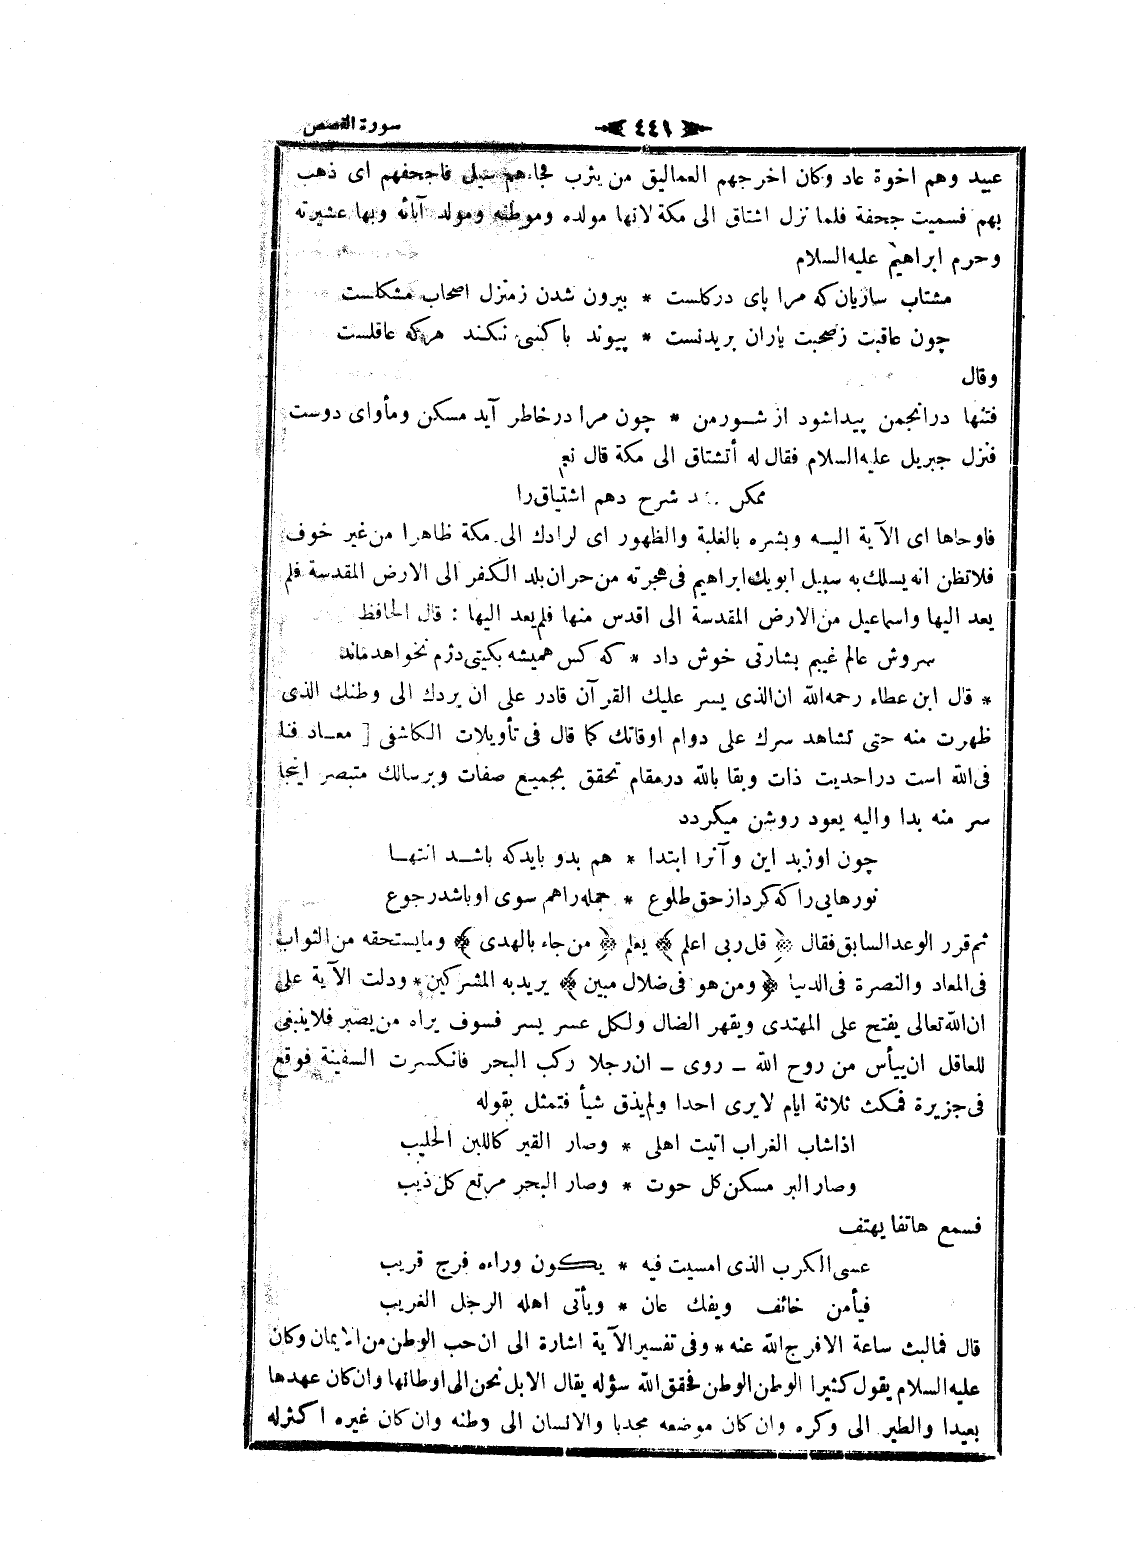 سورة القصص
٤٤١
عبيد وهم اخوة عاد وكان اخرجهم العماليق من يثرب فجاءهم سيل فاجحفهم اى ذهب
بهم فسميت جحفة فلما نزل اشتاق الى مكة لانها مولده وموطنه ومولد آبائه وبها عشيرته
وحرم ابراهيم عليه السلام
مشتاب ساربان كه مرا پاى در كلست * بيرون شدن زمنزل اصحاب مشكلست
چون عاقبت زصحبت ياران بريدنست * پيوند با كسى نكند هر كه عاقلست
وقال
فتنها در انجمن پيدا شود از شور من * چون مرا در خاطر آيد مسكن ومأواى دوست
فنزل جبريل عليه السلام فقال له أتشتاق الى مكة قال نعم
ممكن شرح دهم اشتياق را
فاوحاها اى الآية اليه وبشره بالغلبة والظهور اى لرادك الى مكة ظاهرا من غير خوف
فلا تظن انه يسلك به سبيل ابويك ابراهيم فى هجرته من حران بلد الكفر الى الارض المقدسة فلم
يعد اليها واسماعيل من الارض المقدسة الى اقدس منها فلم يعد اليها : قال الحافظ
سروش عالم غيبم بشارتى خوش داد * كه كس هميشه بكيتى دژم نخواهد ماند
* قال ابن عطاء رحمه الله ان الذى يسر عليك القرآن قادر على ان يردك الى وطنك الذى
ظهرت منه حتى تشاهد سرك على دوام اوقاتك كما قال فى تأويلات الكاشفى [ معاد فنا
فى الله است در احديت ذات وبقا بالله در مقام تحقق بجميع صفات وبر سالك متبصر اينجا
سر منه بدا واليه يعود روشن ميكردد
چون اوزبد اين وآنرا ابتدا * هم بدو بايد كه باشد انتها
نورهايى را كه كرد از حق طلوع * جمله را هم سوى او باشد رجوع
ثم قرر الوعد السابق فقال ﴿ قل ربى اعلم ﴾ يعلم ﴿ من جاء بالهدى ﴾ وما يستحقه من الثواب
فى المعاد والنصرة فى الدنيا ﴿ ومن هو فى ضلال مبين ﴾ يريد به المشركين * ودلت الآية على
ان الله تعالى يفتح على المهتدى ويقهر الضال ولكل عسر يسر فسوف يراه من يصبر فلا ينبغى
للعاقل ان ييأس من روح الله ـ روى ـ ان رجلا ركب البحر فانكسرت السفينة فوقع
فى جزيرة فمكث ثلاثة ايام لا يرى احدا ولم يذق شيأ فتمثل بقوله
اذا شاب الغراب اتيت اهلى * وصار القير كاللبن الحليب
وصار البر مسكن كل حوت * وصار البحر مرتع كل ذيب
فسمع هاتفا يهتف
عسى الكرب الذى امسيت فيه * يكون وراءه فرج قريب
فيأمن خائف ويفك عان * ويأتى اهله الرجل الغريب
قال فما لبث ساعة الا فرج الله عنه * وفى تفسير الآية اشارة الى ان حب الوطن من الايمان وكان
عليه السلام يقول كثيرا الوطن الوطن فحقق الله سؤله يقال الابل تحن الى اوطانها وان كان عهدها
بعيدا والطير الى وكره وان كان موضعه مجدبا والانسان الى وطنه وان كان غيره اكثر له